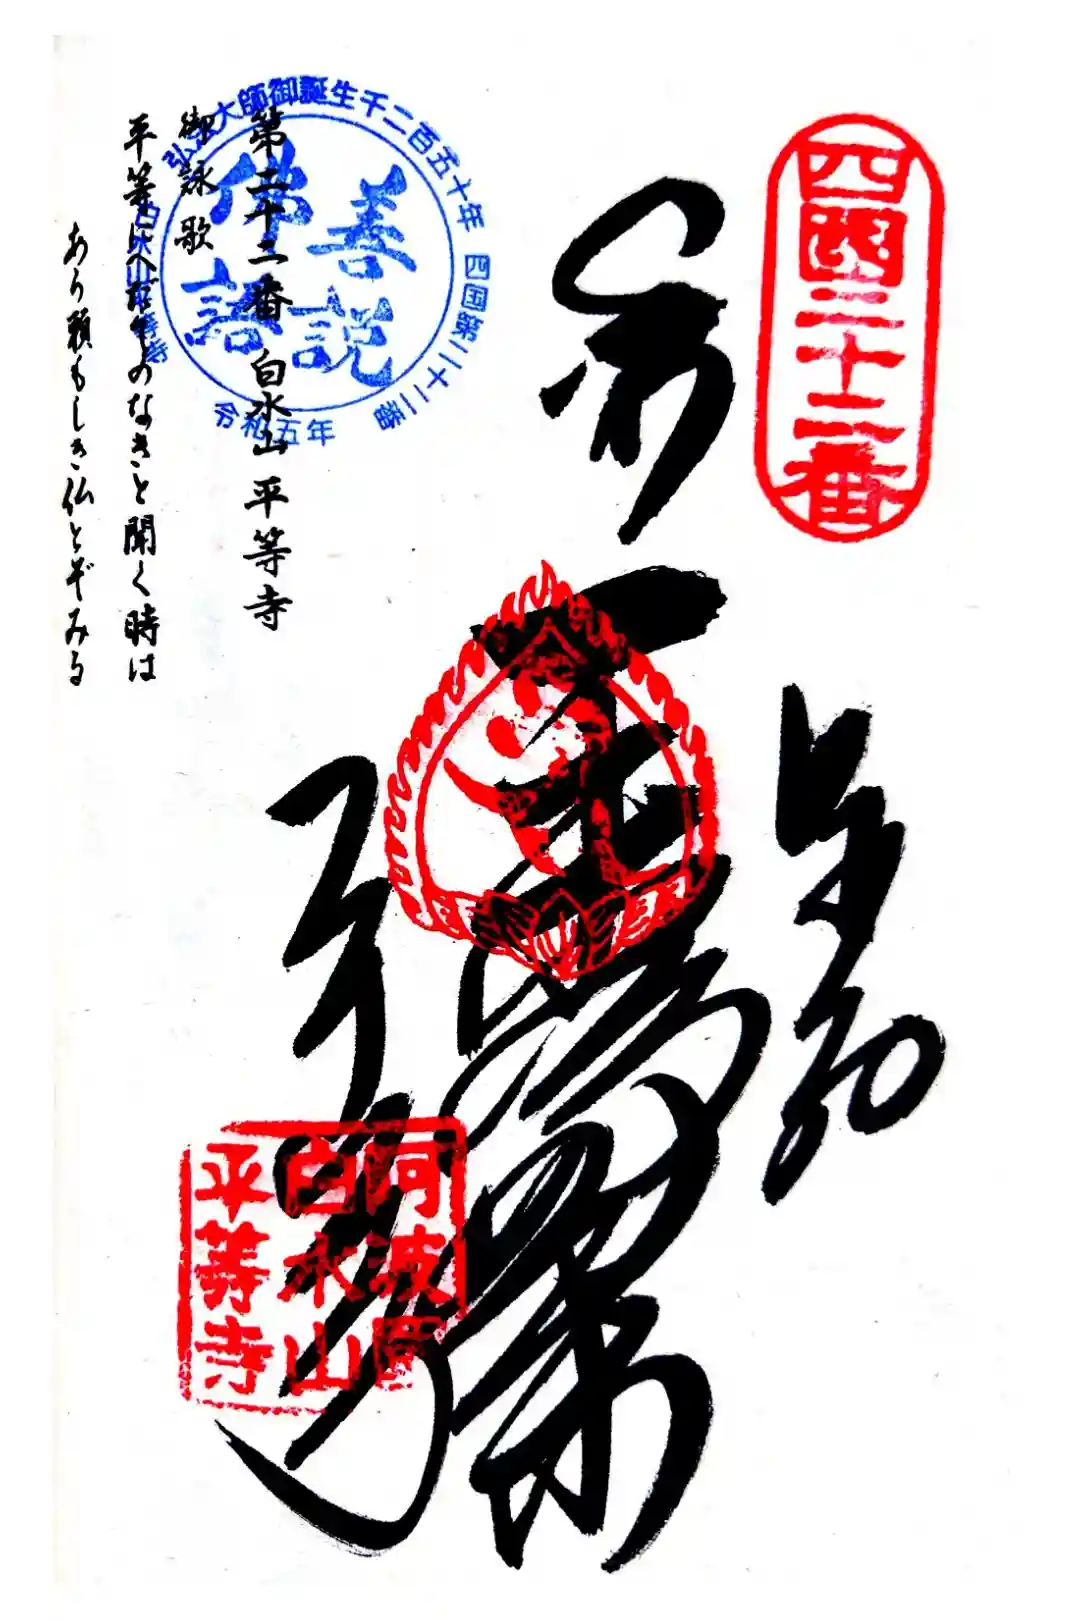 四国二十二番
奉納
薬師如来
平等寺
阿波国
白水山
平等寺
弘法大師御誕生千二百五十年
四国第二十二番
令和五年
善説
佛語
第二十二番 白水山 平等寺
御詠歌
平等にへだてのなきと聞く時は
あら頼もしき仏とぞみる